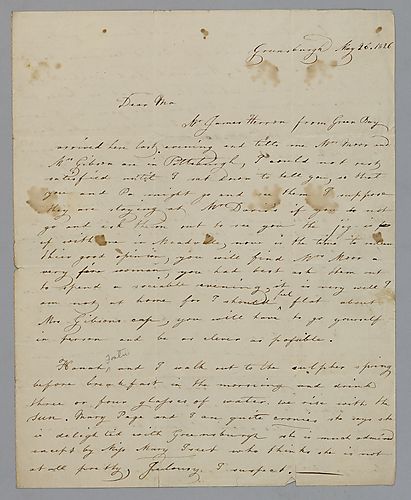 Greensburgh May 26. 1826
Dear Ma
Mr James Herron from Green Bay
arrived here last evening and tells me Mrs Moor and
Mrs Gibson are in Pittsburgh, I could not rest
satisfied until I sat down to tell you, so that
you and Pa might go and see them I suppose
they are staying at Mr Davis's if you do not
go and ask them out to see you, the jig is
up with me in Meadville, now is the time to
their good opinion, you will find Mrs Moor a
very fair woman, you had best ask them out
to spend a sociable evening, it is very well I
am not at home for I should feel flat about
Mrs Gibsons cape, you will have to go yourself
in person and be as clever as possible.
Foster
Hannah, and I walk out to the sulpher spring
before breakfast in the morning and drink
three or four glasses of water. we rise with the
sun. Mary Page and I are quite cronies she says she
is delighted with Greensburgh she is much admired
except by Miss Mary who thinks she is not
at all pretty, Jalousy I suspect.